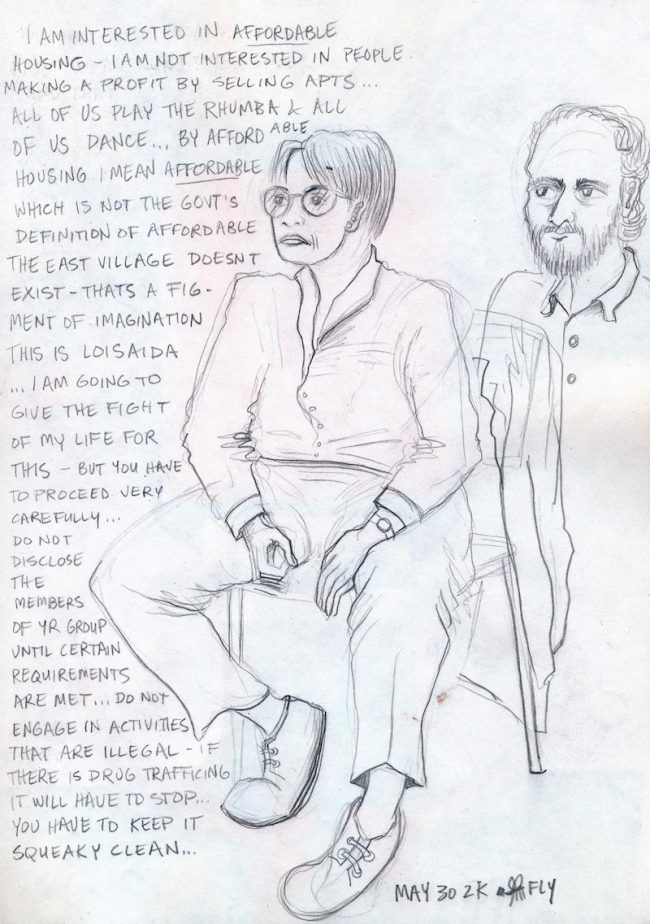 I AM INTERESTED IN AFFORDABLE
HOUSING - I AM NOT INTERESTED IN PEOPLE
MAKING A PROFIT BY SELLING APTS...
ALL OF US PLAY THE RHUMBA & ALL
OF US DANCE... BY AFFORDABLE
HOUSING I MEAN AFFORDABLE
WHICH IS NOT THE GOVT'S
DEFINITION OF AFFORDABLE
THE EAST VILLAGE DOESNT
EXIST - THATS A FIG-
MENT OF IMAGINATION
THIS IS LOISAIDA
...I AM GOING TO
GIVE THE FIGHT
OF MY LIFE FOR
THIS - BUT YOU HAVE
TO PROCEED VERY
CAREFULLY...
DO NOT
DISCLOSE
THE
MEMBERS
OF YR GROUP
UNTIL CERTAIN
REQUIREMENTS
ARE MET... DO NOT
ENGAGE IN ACTIVITIES
THAT ARE ILLEGAL - IF
THERE IS DRUG TRAFFICING
IT WILL HAVE TO STOP...
YOU HAVE TO KEEP IT
SQUEAKY CLEAN...
MAY 30 2K FLY